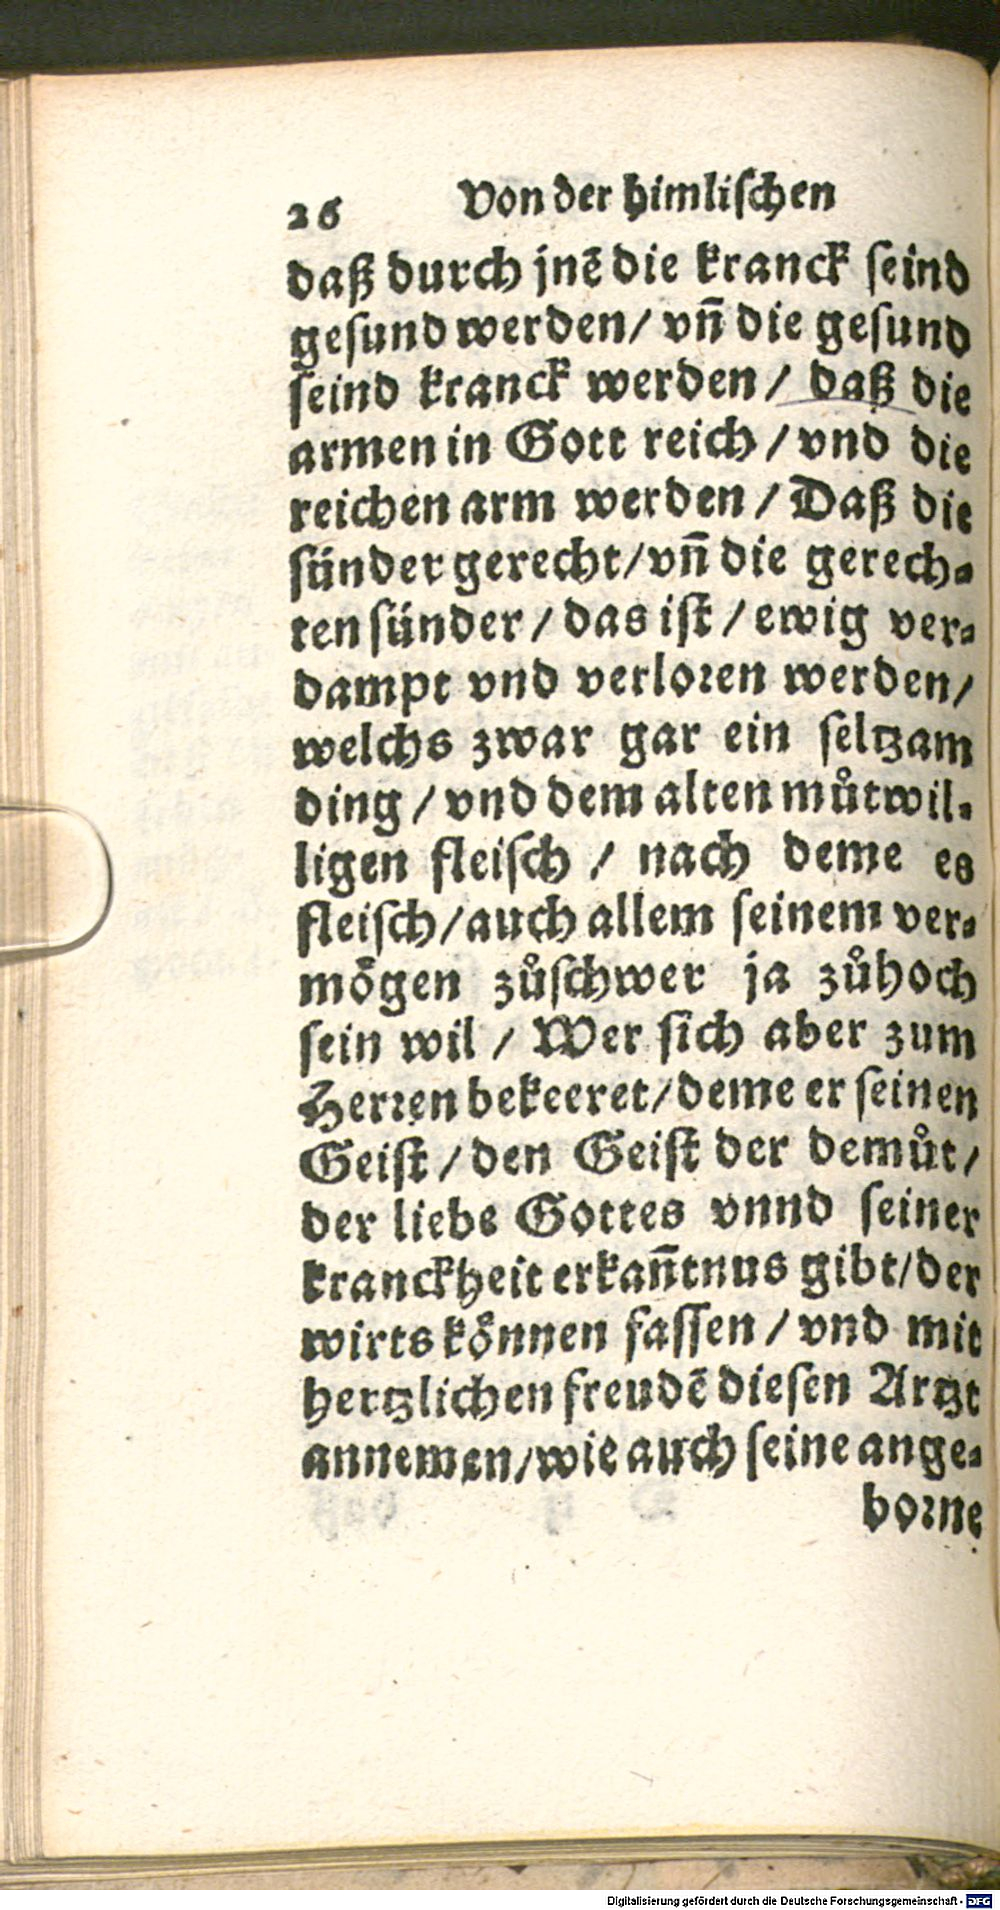 26 Von der himlischen
daß durch jnẽ die kranck seind
gesund werden/ vñ die gesund
seind kranck werden/ daß die
armen in Gott reich/ vnd die
reichen arm werden/ Daß die
sünder gerecht/ vñ die gerech-
ten sünder/ das ist/ ewig ver-
dampt vnd verloren werden/
welchs zwar gar ein seltzam
ding/ vnd dem alten můtwil-
ligen fleisch/ nach deme es
fleisch/ auch allem seinem ver-
moͤgen zůschwer ja zůhoch
sein wil/ Wer sich aber zum
Herren bekeeret/ deme er seinen
Geist/ den Geist der demůt/
der liebe Gottes vnnd seiner
kranckheit erkañtnus gibt/ der
wirts koͤnnen fassen/ vnd mit
hertzlichen freudẽ diesen Artzt
annemen/ wie auch seine ange-
borne
Digitalisierung gefördert durch die Deutsche Forschungsgemeinschaft - DFG